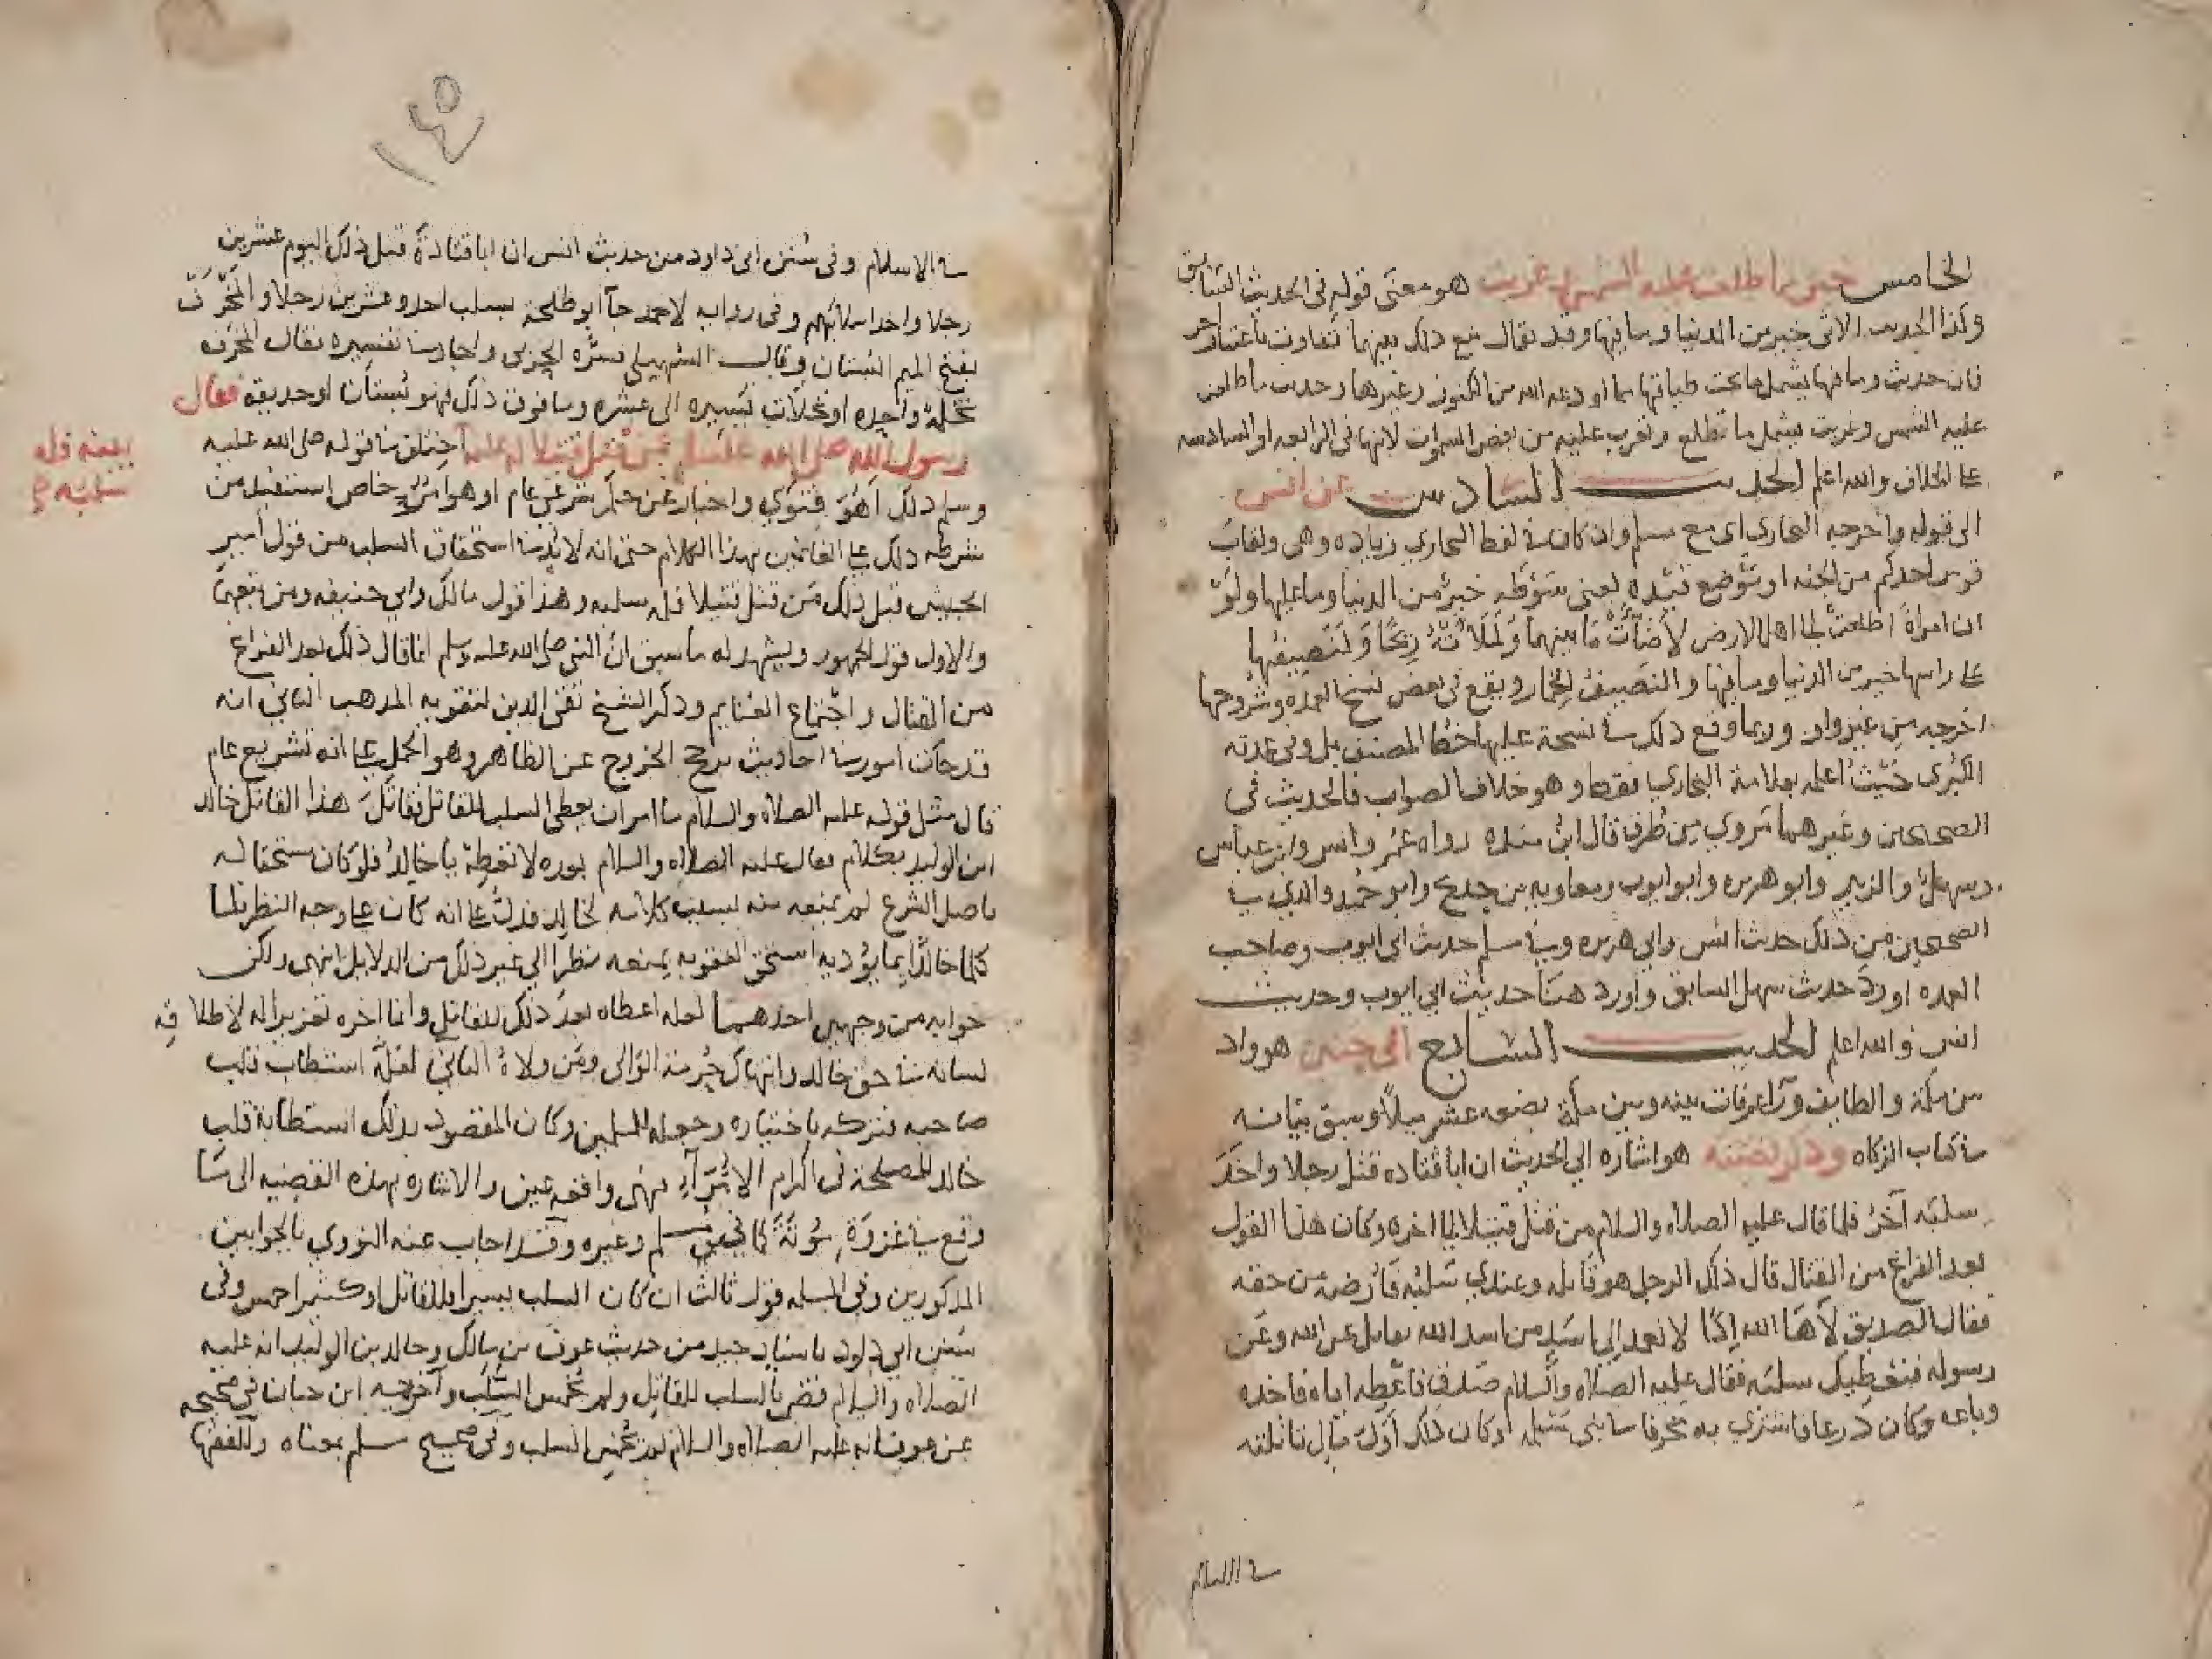 الخامس خير مما طلعت عليه الشمس وغربت هو معنى قوله في الحديث السابق
وكذا الحديث الاتي خير من الدنيا وما فيها وقد يقال مع ذلك بينهما تفاوت باعتبار اخر
فان حديث وما فيها يشمل ما تحت طباقها مما اودعه الله من الكنوز وغيرها وحديث ما طلعت
عليه الشمس وغربت يشمل ما تطلع وتغرب عليه من بعض السموات لانها في الرابعه او السادسه
على الخلاف والله اعلم الحديث السادس عن انس
الى قوله واخرجه البخاري اي مع مسلم وان كان في لفظ البخاري زياده وهي ولقاب
قوس احدكم من الجنه او موضع قيده يعني سوطه خير من الدنيا وما عليها ولو
ان امراة اطلعت الى اهل الارض لاضأت ما بينهما ولملأته ريحا ولنصيفها
على راسها خير من الدنيا وما فيها والنصيف الخمار ويقع في بعض نسخ العمده وشروحها
اخرجه من غير واو وربما وقع ذلك في نسخة عليها خط المصنف بل وفي عمدته
الكبرى حيث اعلمه بعلامة البخاري فقط وهو خلاف الصواب فالحديث في
الصحيحين وغيرهما مروي من طرق قال ابن منده رواه عمر وانس وابن عباس
وسهل والزبير وابو هريره وابو ايوب ومعاويه بن حديج وابو حميد والذي في
الصحيحين من ذلك حديث انس وابي هريره وفي مسلم حديث ابي ايوب وصاحب
العمده اورد حديث سهل السابق واورد هنا حديث ابي ايوب وحديث
انس والله اعلم الحديث السابع الى حنين هو واد
بين مكة والطايف وراء عرفات بينه وبين مكة بضعه عشر ميلا وسبق بيانه
في كتاب الزكاه وذكر قصته هو اشاره الى الحديث ان ابا قتاده قتل رجلا واخذ
سلبه آخر فلما قال عليه الصلاه والسلام من قتل قتيلا الى اخره وكان هذا القول
بعد الفراغ من القتال قال ذلك الرجل هو قاتله وعندي سلبه فأرضه من حقه
فقال الصديق لاها الله اذا لا نعمد الى اسد من اسد الله يقاتل عن الله وعن
رسوله فنعطيك سلبه فقال عليه الصلاه والسلام صدق فاعطه اياه فاخذه
وباعه وكان درعا فاشترى به مخرفا في بني سلمه وكان ذلك اول مال تاثله
في الاسلام
١٤٥
في الاسلام وفي سنن ابي داود من حديث انس ان ابا قتادة قتل ذلك اليوم عشرين
رجلا واخذ اسلابهم وفي روايه لاحمد جآ ابو طلحة بسلب احد وعشرين رجلا والمخرف
بفتح الميم البستان وقال السهيلي فسره الحربي واجاد في تفسيره فقال المخرف
نخلة واحده او نخلات يسيره الى عشره وما فوق ذلك فهو بستان او حديقة فقال
رسول الله صلى الله عليه وسلم من قتل قتيلا له عليه اختلف في قوله صلى الله عليه
بينه فله
سلبه
وسلم ذلك أهو فتوى واخبار عن حكم شرعي عام او هو امر خاص استقبل من
شرطه ذلك على الغانمين بهذا الكلام حتى انه لا بد في استحقاق السلب من قول امير
الجيش قبل ذلك من قتل قتيلا فله سلبه وهذا قول مالك وابي حنيفه ومن تبعهما
والاول قول الجمهور ويشهد له ما سبق ان النبي صلى الله عليه وسلم انما قال ذلك بعد الفراغ
من القتال واجتماع الغنايم وذكر الشيخ تقي الدين لتقويه المذهب الثاني انه
قد جات امور في احاديث ترجح الخروج عن الظاهر وهو الحمل على انه تشريع عام
قال مثل قوله عليه الصلاه والسلام ما امر ان يعطى السلب للقاتل فقابل هذا القاتل خالد
ابن الوليد بكلام فقال عليه الصلاه والسلام بعده لا تعطه يا خالد فلو كان مستحقا له
باصل الشرع لم يمنعه منه بسبب كلامه لخالد فدل على انه كان على وجه النظر فلما
كلم خالدا بما يؤذيه استحق العقوبه بمنعه نظرا الى غير ذلك من الدلايل انتهى ولكن
جوابه من وجهين احدهما لعله اعطاه بعد ذلك للقاتل وانما اخره تعزيرا له لاطلاقه
لسانه في حق خالد وانتهاك حرمة الوالي ومن ولاه الثاني لعله استطاب قلب
صاحبه فتركه باختياره وجعله للمسلمين وكان المقصود بذلك استطابة قلب
خالد للمصلحة في اكرام الامراء فهي واقعه عين والاشاره بهذه القضيه الى ما
وقع في غزوة مؤتة كما في مسلم وغيره وقد اجاب عنه النووي بالجوابين
المذكورين وفي المسله قول ثالث ان كان السلب يسيرا فللقاتل او كثيرا خمس وفي
سنن ابي داود باسناد جيد من حديث عوف بن مالك وخالد بن الوليد انه عليه
الصلاه والسلام قضى بالسلب للقاتل ولم يخمس السلب وآخرجه ابن حبان في صحيحه
عن عوف انه عليه الصلاه والسلام لم يخمس السلب وفي صحيح مسلم بمعناه وللفقها